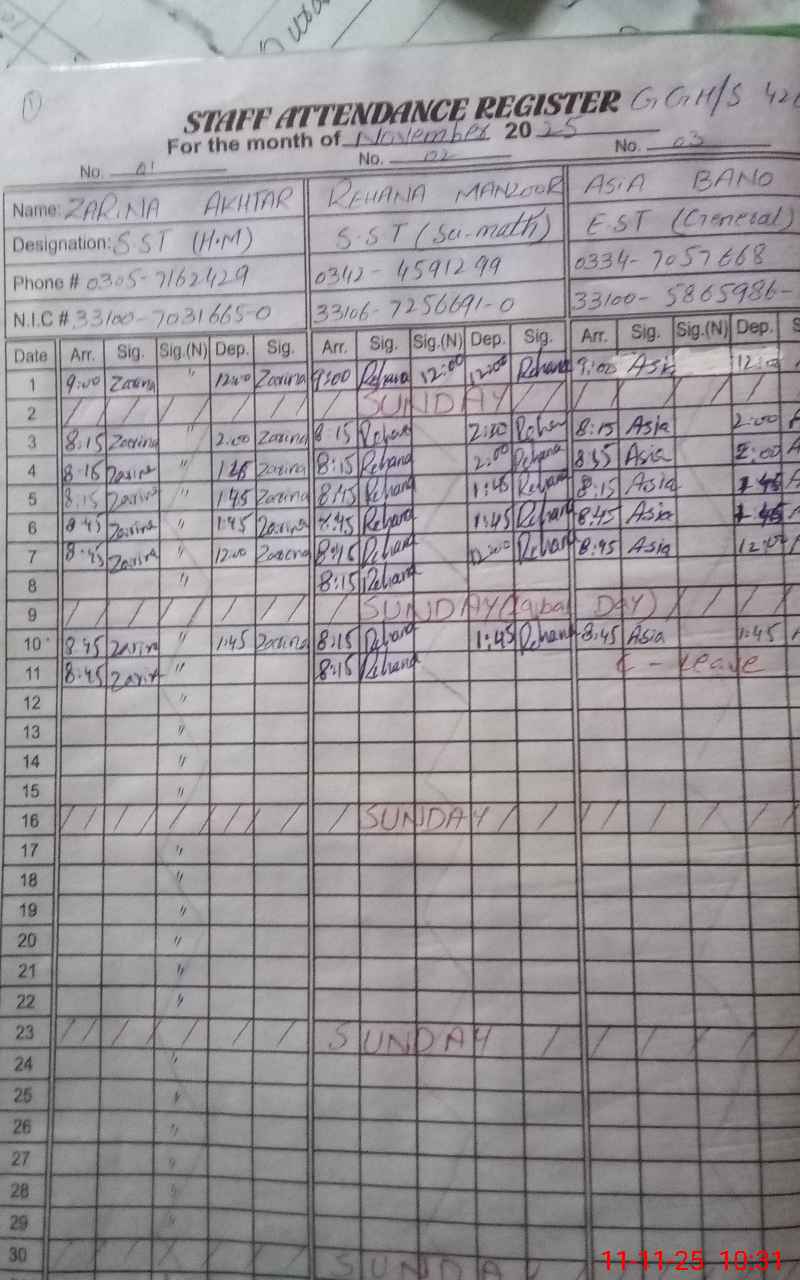 1
STAFF ATTENDANCE REGISTER G.G.H/S 42
For the month of November 2025
No. 01 No. 02 No. 03
Name: ZARINA AKHTAR REHANA MANZOOR ASIA BANO
Designation: S.S.T (H.M) S.S.T (Sci-math) E.S.T (General)
Phone # 0305-7162429 0342-4591299 0334-7057668
N.I.C # 33100-7031665-0 33106-7256691-0 33100-5865986-
Date Arr. Sig. Sig.(N) Dep. Sig. Arr. Sig. Sig.(N) Dep. Sig. Arr. Sig. Sig.(N) Dep. S
1 9:00 Zarina " 12:00 Zarina 9:00 Rehana 12:00 12:00 Rehana 9:00 Asia 12:00
2 SUNDAY
3 8:15 Zarina " 2:00 Zarina 8:15 Rehana 2:00 Rehana 8:15 Asia 2:00 A
4 8:15 Zarina " Zarina 8:15 Rehana 2:00 Rehana Asia 2:00 A
5 8:15 Zarina " 1:45 Zarina 8:15 Rehana 1:45 Rehana 8:15 Asia 1:45 A
6 8:45 Zarina " 1:45 Zarina 8:45 Rehana 1:45 Rehana 8:45 Asia 1:45 A
7 8:45 Zarina " 12:00 Zarina 8:45 Rehana 12:00 Rehana 8:45 Asia 12:00 A
8 " 8:15 Rehana
9 SUNDAY (Iqbal DAY)
10 8:45 Zarina " 1:45 Zarina 8:15 Rehana 1:45 Rehana 8:45 Asia 1:45 A
11 8:45 Zarina " 8:15 Rehana C - Leave
12 "
13 "
14 "
15 "
16 SUNDAY
17 "
18 "
19 "
20 "
21 "
22 "
23 SUNDAY
24 "
25 "
26 "
27 "
28 "
29 "
30 SUNDAY
11-11-25 10:31